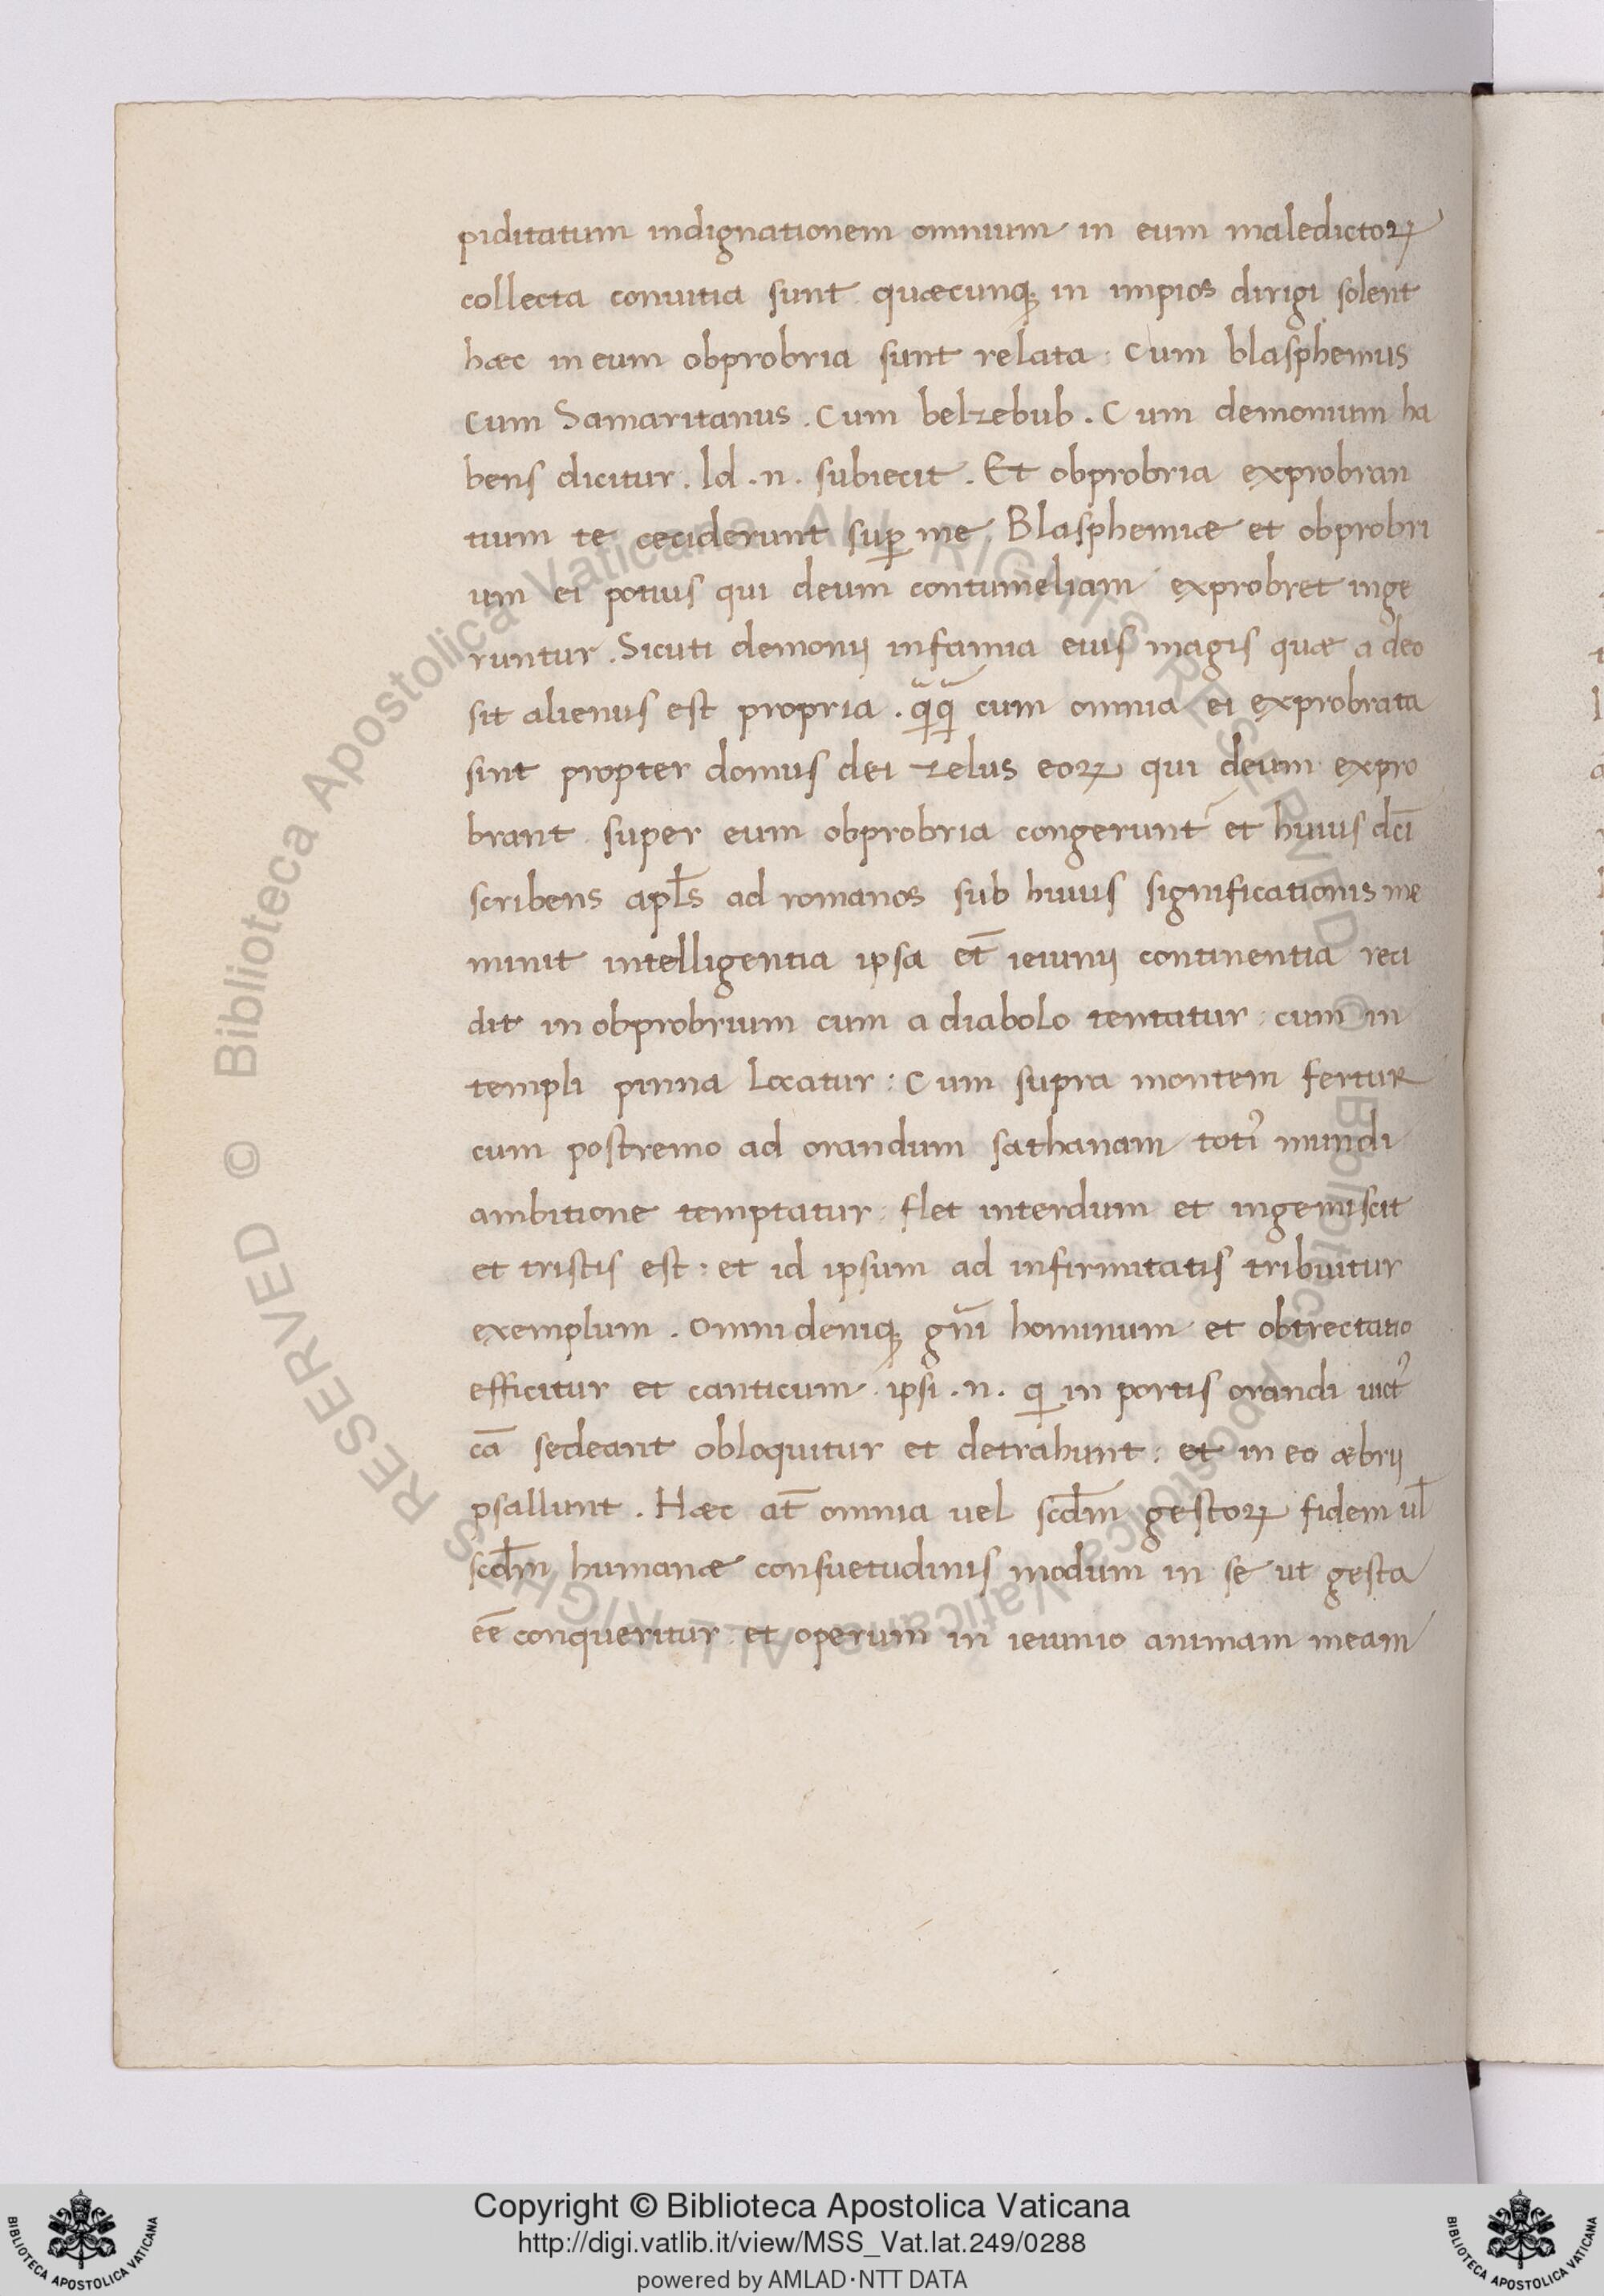 piditatum indignationem omnium in eum maledictoꝝ
collecta conuitia sunt quæcunqꝫ in impios dirigi solent
hæc in eum obprobria sunt relata : Cum blasphemus
cum Samaritanus . Cum belzebub . Cum demonium ha
bens dicitur . Id .n. subiecit . Et obprobria exprobran
tium te ceciderunt suꝑ me . Blasphemiæ et obprobri
um ei potius qui deum contumeliam exprobret inge
runtur . Sicuti demonij infamia eius magis quæ a deo
sit alienus est propria . q̈q̈ cum omnia ei exprobrata
sint propter domus dei zelus eoꝝ qui deum expro
brant super eum obprobria congerunt et huius dc̄i
scribens apl̄s ad romanos sub huius significationis me
minit intelligentia ipsa et̄ ieiunij continentia reci
dit in obprobrium cum a diabolo tentatur : cum in
templi pinna locatur : Cum supra montem fertur
cum postremo ad orandum sathanam totꝰ mundi
ambitione temptatur : flet interdum et ingemiscit
et tristis est : et id ipsum ad infirmitatis tribuitur
exemplum . Omni deniqꝫ gn̄i hominum et obtrectatio
efficitur et canticum . ipsi .n. qi in portis orandi uict᾽
cā sedeant obloquitur et detrahunt : et in eo æbrij
psallunt . Hæc at̄ omnia uel scd̄m gestoꝝ fidem ul̄
scd̄m humanæ consuetudinis modum in se ut gesta
eē conqueritur et operum in ieiunio animam meam
Copyright © Biblioteca Apostolica Vaticana
http://digi.vatlib.it/view/MSS_Vat.lat.249/0288
powered by AMLAD·NTT DATA
BIBLIOTECA APOSTOLICA VATICANA
BIBLIOTECA APOSTOLICA VATICANA
© Biblioteca Apostolica Vaticana ALL RIGHTS RESERVED © Biblioteca Apostolica Vaticana ALL RIGHTS RESERVED